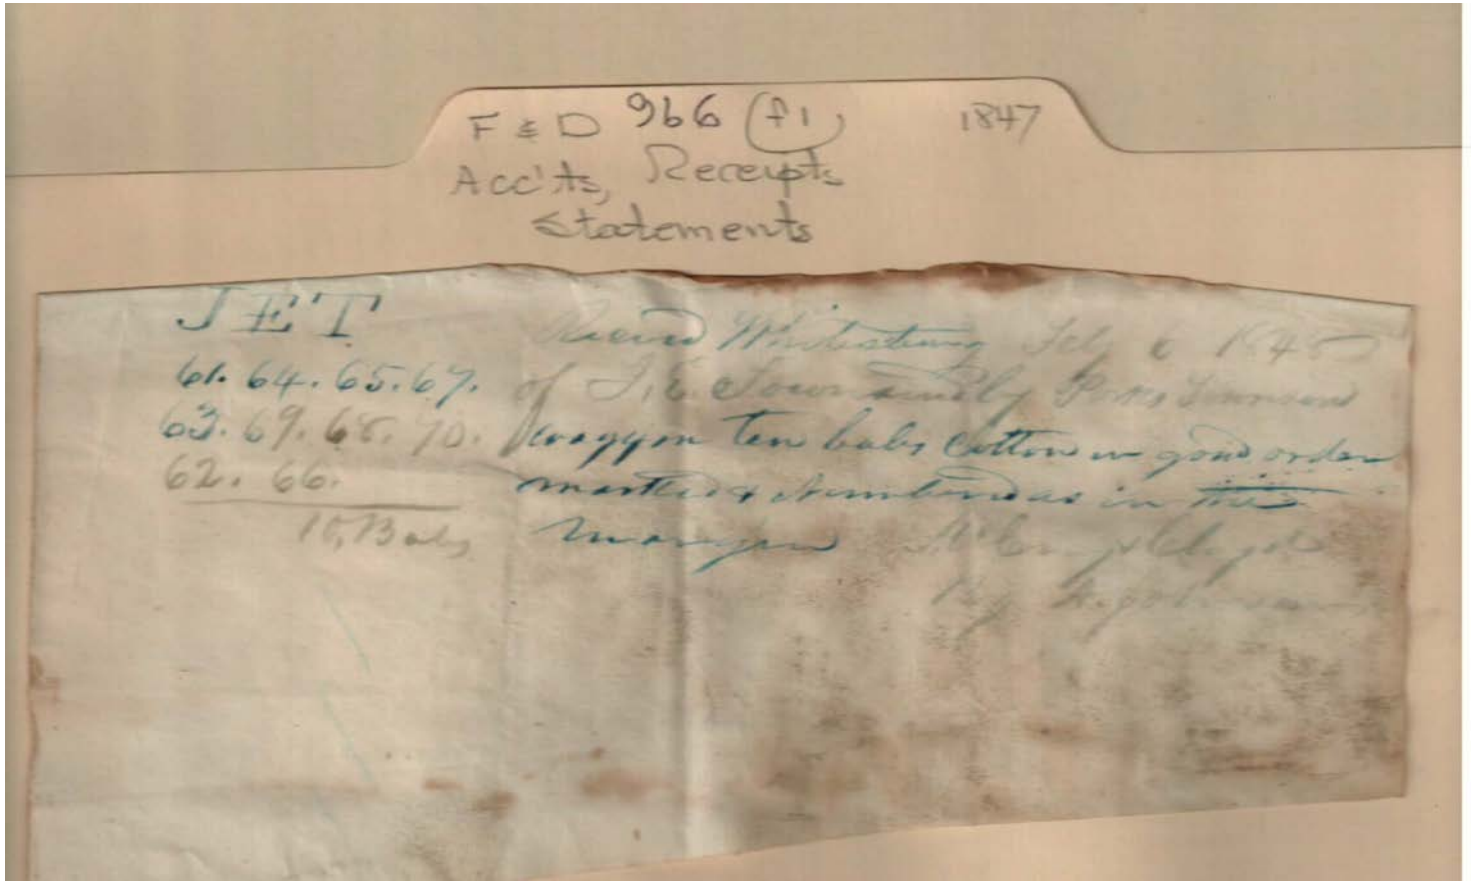 F & D 966 (f1) 1847
Acc'ts, Receipts
Statements
JET
61. 64. 65. 67.
63. 69. 68. 70.
62. 66.
10, Bales
Received Feb 6
of J. E. Townsend by Townsend
waggon ten bales Cotton in good order
marked & Numbered as in the
margin